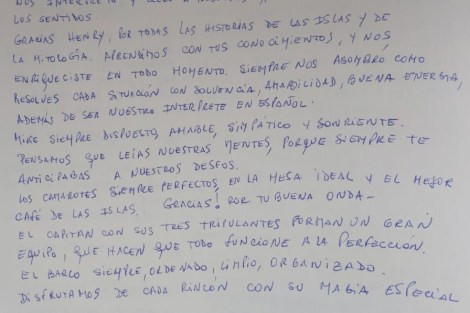 NOS INTERPRETÓ Y
LOS SENTIDOS.
GRACIAS HENRY, POR TODAS LAS HISTORIAS DE LAS ISLAS Y DE
LA MITOLOGÍA. APRENDIMOS CON TUS CONOCIMIENTOS, Y NOS
ENRIQUECISTE EN TODO MOMENTO. SIEMPRE NOS ASOMBRÓ COMO
RESOLVES CADA SITUACIÓN CON SOLVENCIA, AMABILIDAD, BUENA ENERGIA,
ADEMÁS DE SER NUESTRO INTERPRETE EN ESPAÑOL.
MIKE SIEMPRE DISPUESTO, AMABLE, SIMPÁTICO Y SONRIENTE.
PENSAMOS QUE LEÍAS NUESTRAS MENTES, PORQUE SIEMPRE TE
ANTICIPABAS A NUESTROS DESEOS.
LOS CAMAROTES SIEMPRE PERFECTOS, EN LA MESA IDEAL Y EL MEJOR
CAFÉ DE LAS ISLAS. GRACIAS! POR TU BUENA ONDA-
EL CAPITAN CON SUS TRES TRIPULANTES FORMAN UN GRAN
EQUIPO, QUE HACEN QUE TODO FUNCIONE A LA PERFECCIÓN.
EL BARCO SIEMPRE, ORDENADO, LIMPIO, ORGANIZADO.
DISFRUTAMOS DE CADA RINCÓN CON SU MAGIA ESPECIAL